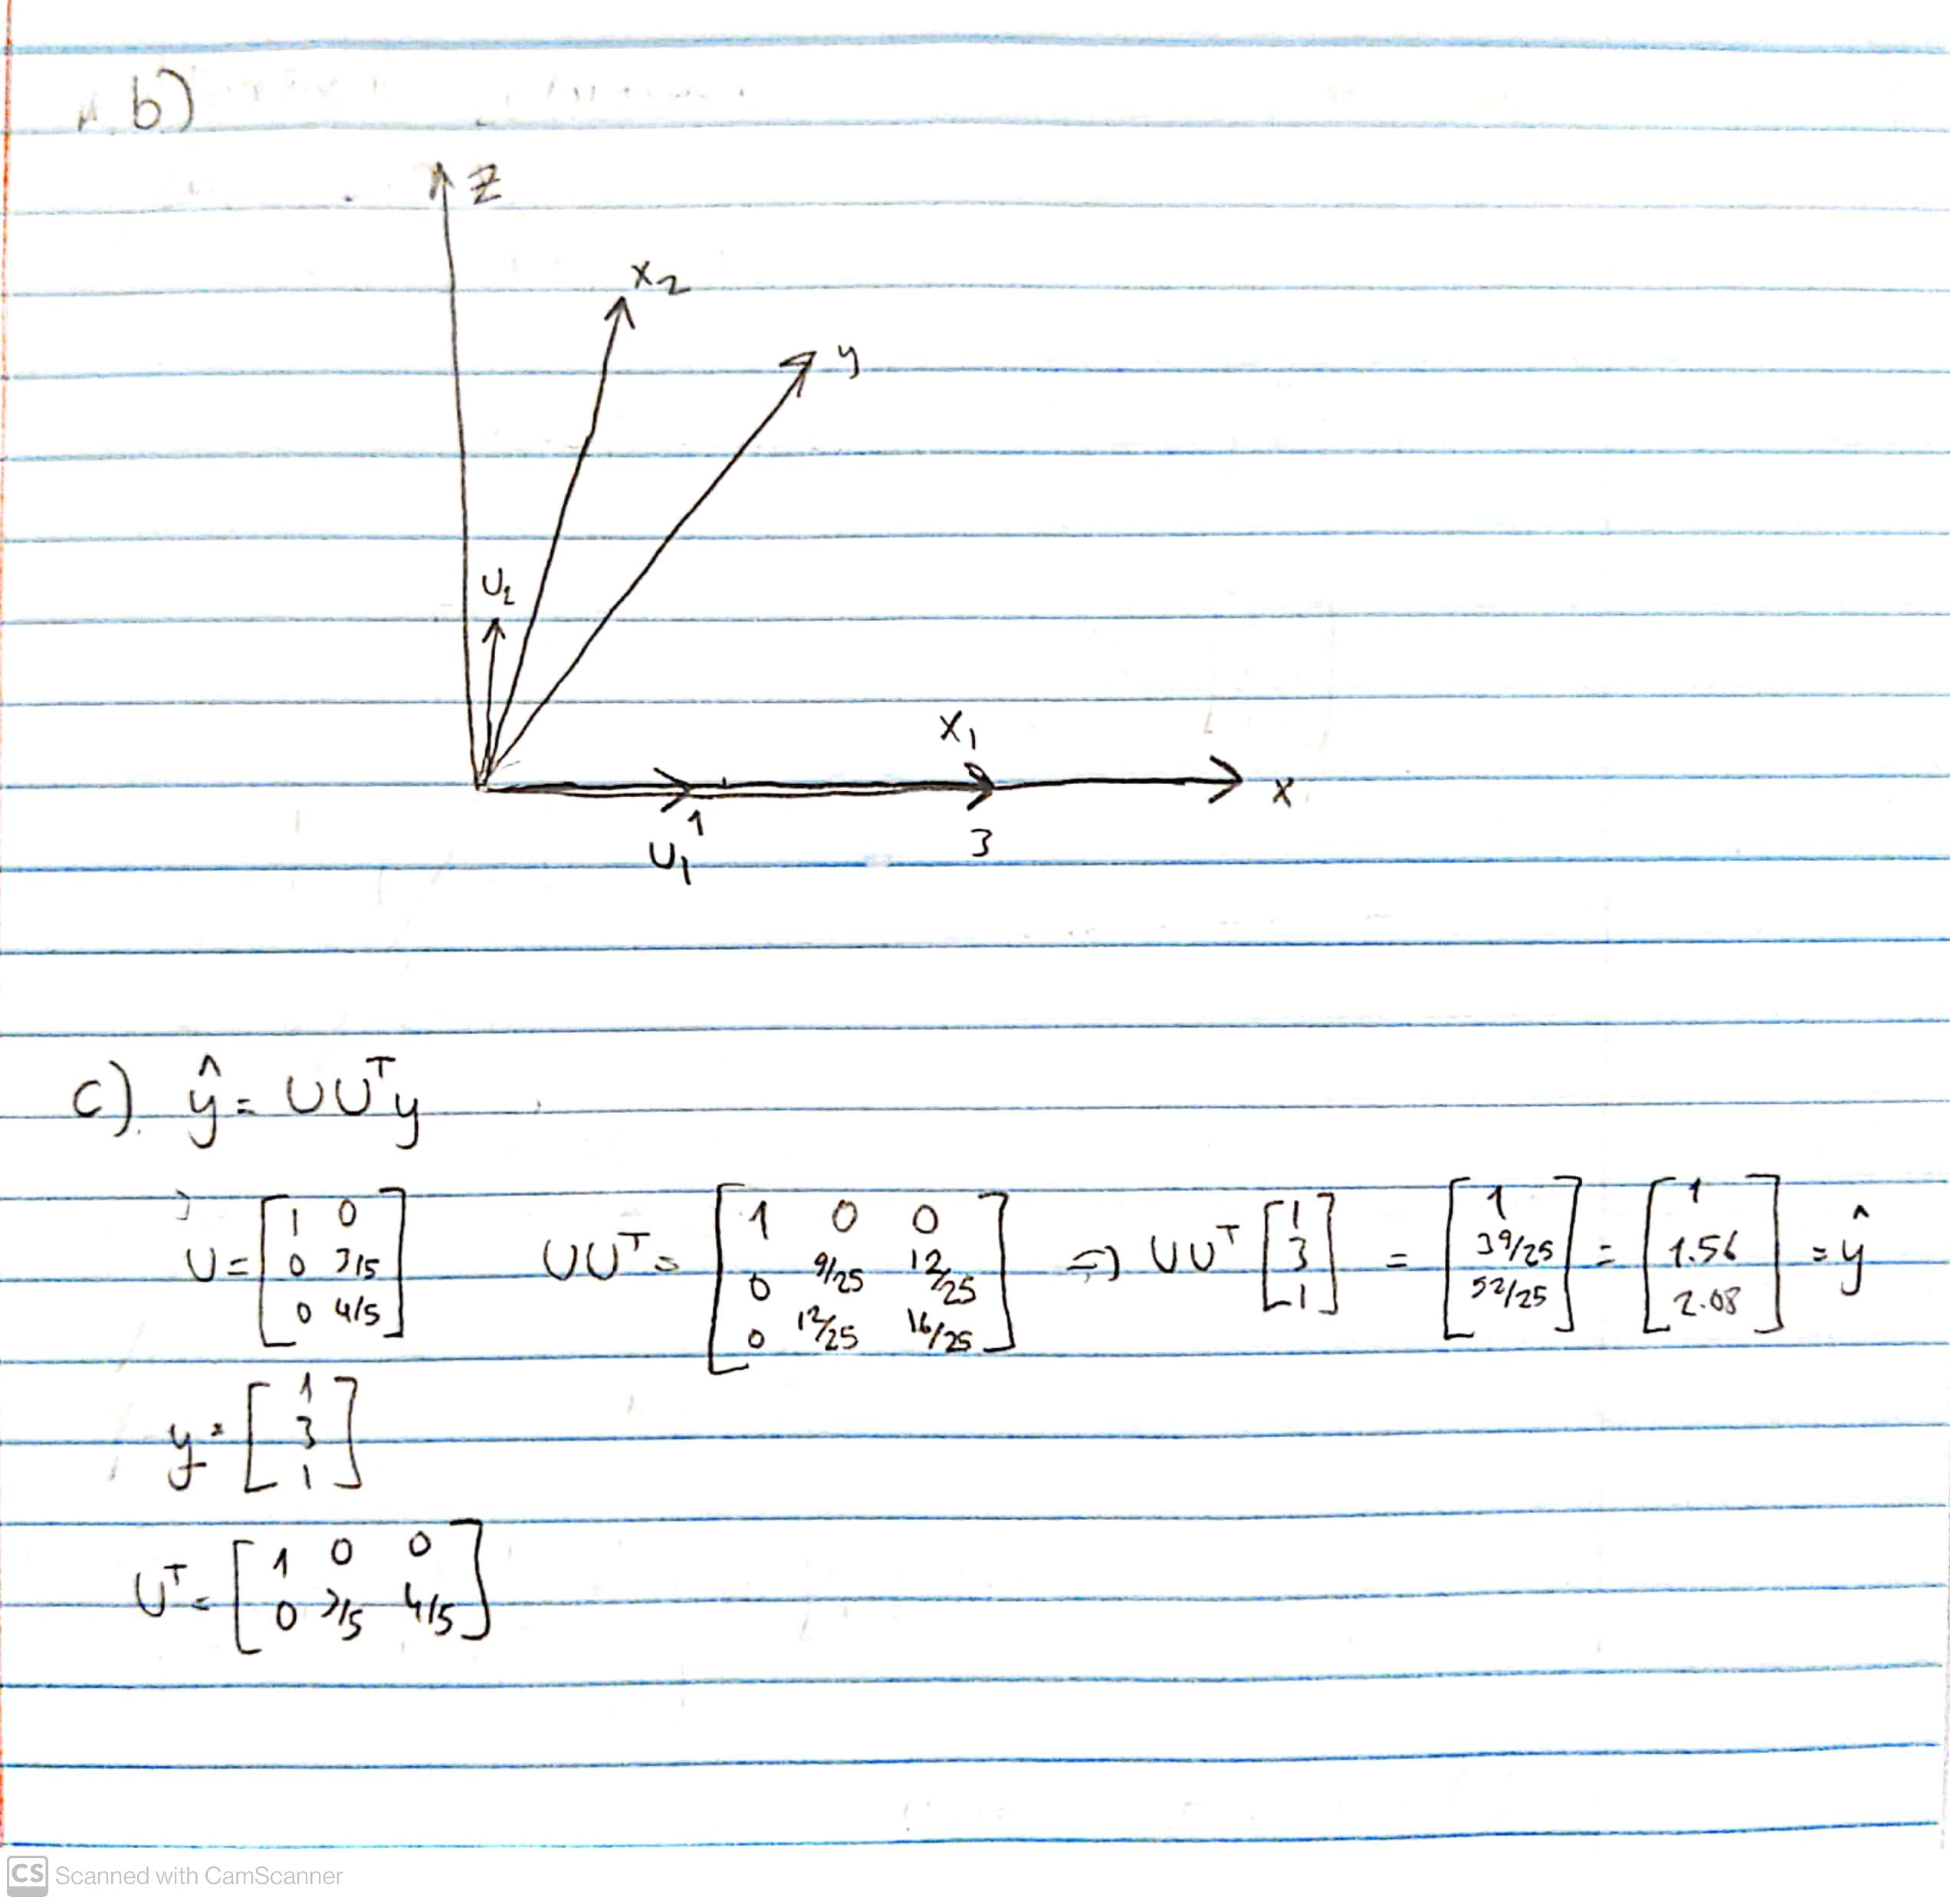 b)
z
x₂
y
U₂
x₁
x
1
3
U₁
c) ŷ = UUᵀy
U = [1 0; 0 3/5; 0 4/5] UUᵀ = [1 0 0; 0 9/25 12/25; 0 12/25 16/25] => UUᵀ [1; 3; 1] = [1; 39/25; 52/25] = [1; 1.56; 2.08] = ŷ
y = [1; 3; 1]
Uᵀ = [1 0 0; 0 3/5 4/5]
CS Scanned with CamScanner